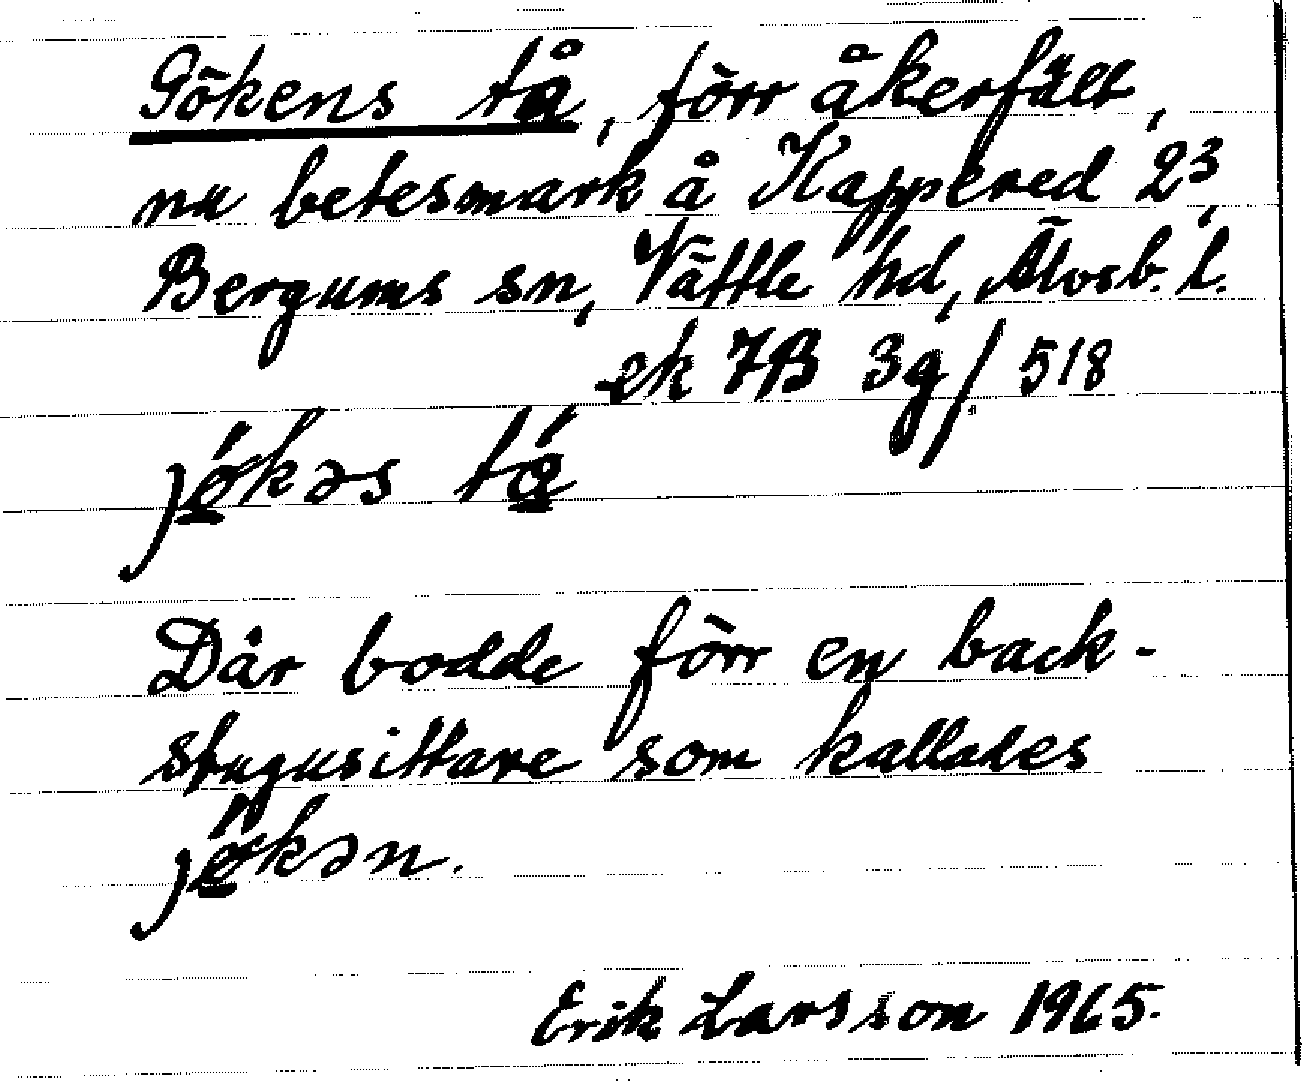 Gökens tå, förr åkerfält,
nu betesmark å Kappered 2³,
Bergums sn, Vättle hd, Älvsb. l.
ek 7B 3g/518
jǿ̲kəs tǻ̲
Där bodde förr en back-
stugusittare som kallades
jø̲̋kən.
Erik Larsson 1965.